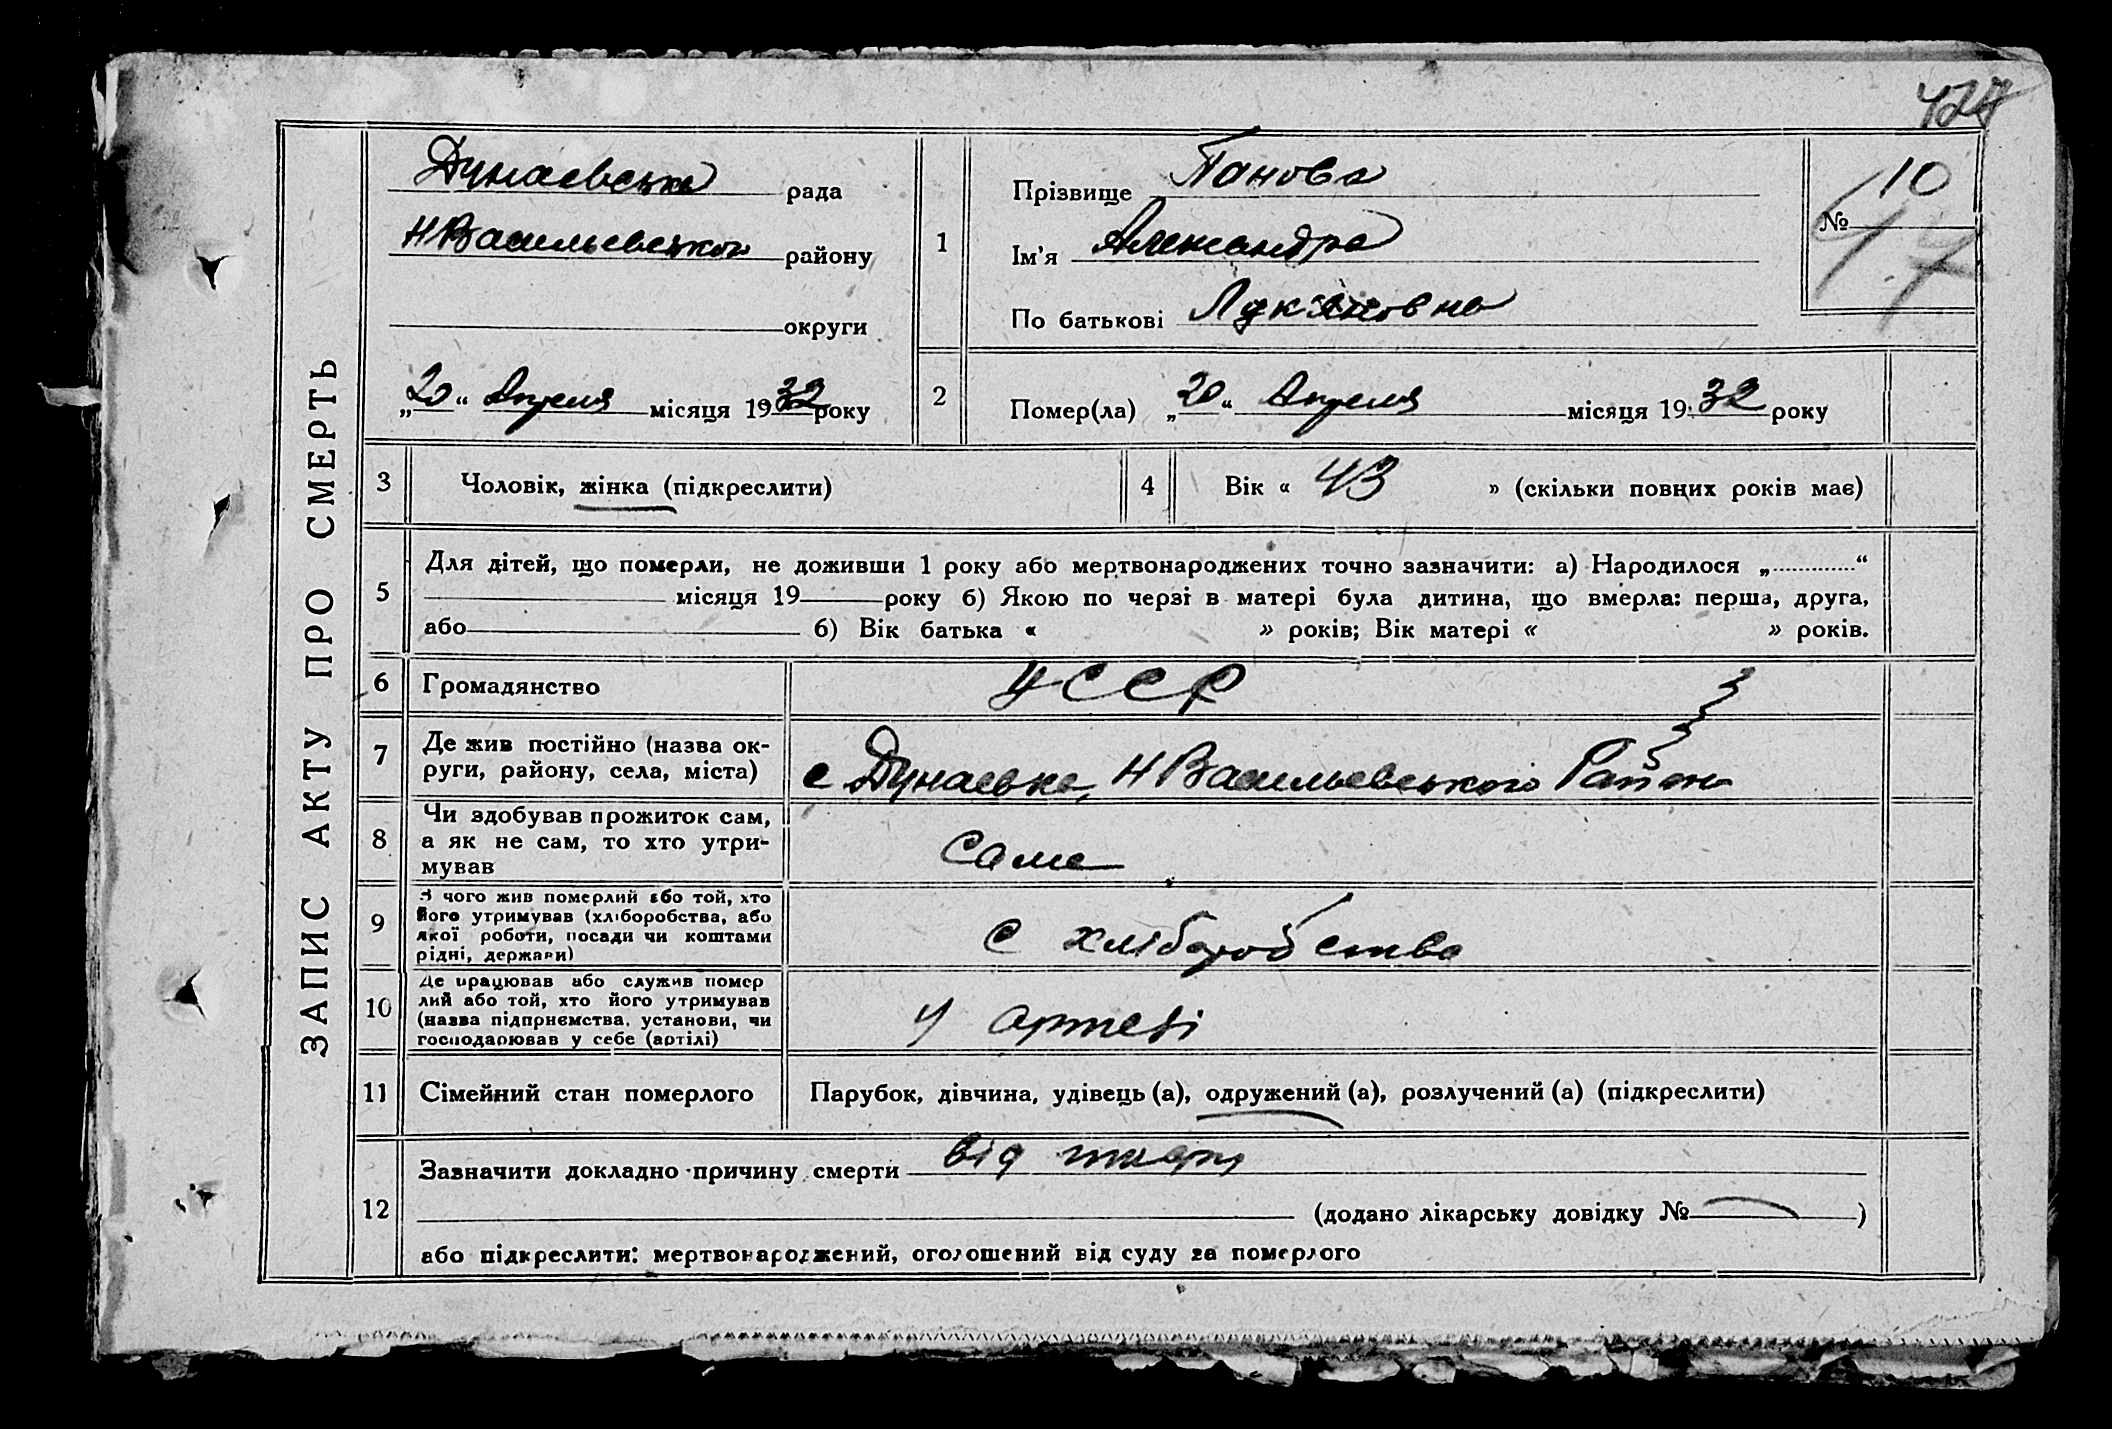 427
ЗАПИС АКТУ ПРО СМЕРТЬ
Дунаевська рада
НВасильевського району
округи
„20“ Апреля місяця 1932 року
1
Прізвище Панова
Ім'я Александра
По батькові Лук'яновна
№ 10
47
2
Помер(ла) „20“ Апреля місяця 1932 року
3 Чоловік, жінка (підкреслити)
4 Вік « 43 » (скільки повних років має)
5
Для дітей, що померли, не доживши 1 року або мертвонароджених точно зазначити: а) Народилося „............“
місяця 19 року б) Якою по черзі в матері була дитина, що вмерла: перша, друга,
або б) Вік батька « » років; Вік матері « » років.
6 Громадянство УССР
7 Де жив постійно (назва ок-
руги, району, села, міста)
с Дунаевка, НВасильевського Району
8 Чи здобував прожиток сам,
а як не сам, то хто утри-
мував
Саме
9 З чого жив померлий або той, хто
його утримував (хліборобства, або
якої роботи, посади чи коштами
рідні, держави)
С хліборобства
10 Де працював або служив помер
лий або той, хто його утримував
(назва підприємства, установи, чи
господарював у себе (артілі)
У артелі
11 Сімейний стан померлого Парубок, дівчина, удівець (а), одружений (а), розлучений (а) (підкреслити)
12
Зазначити докладно причину смерти від
(додано лікарську довідку № )
або підкреслити: мертвонароджений, оголошений від суду за померлого